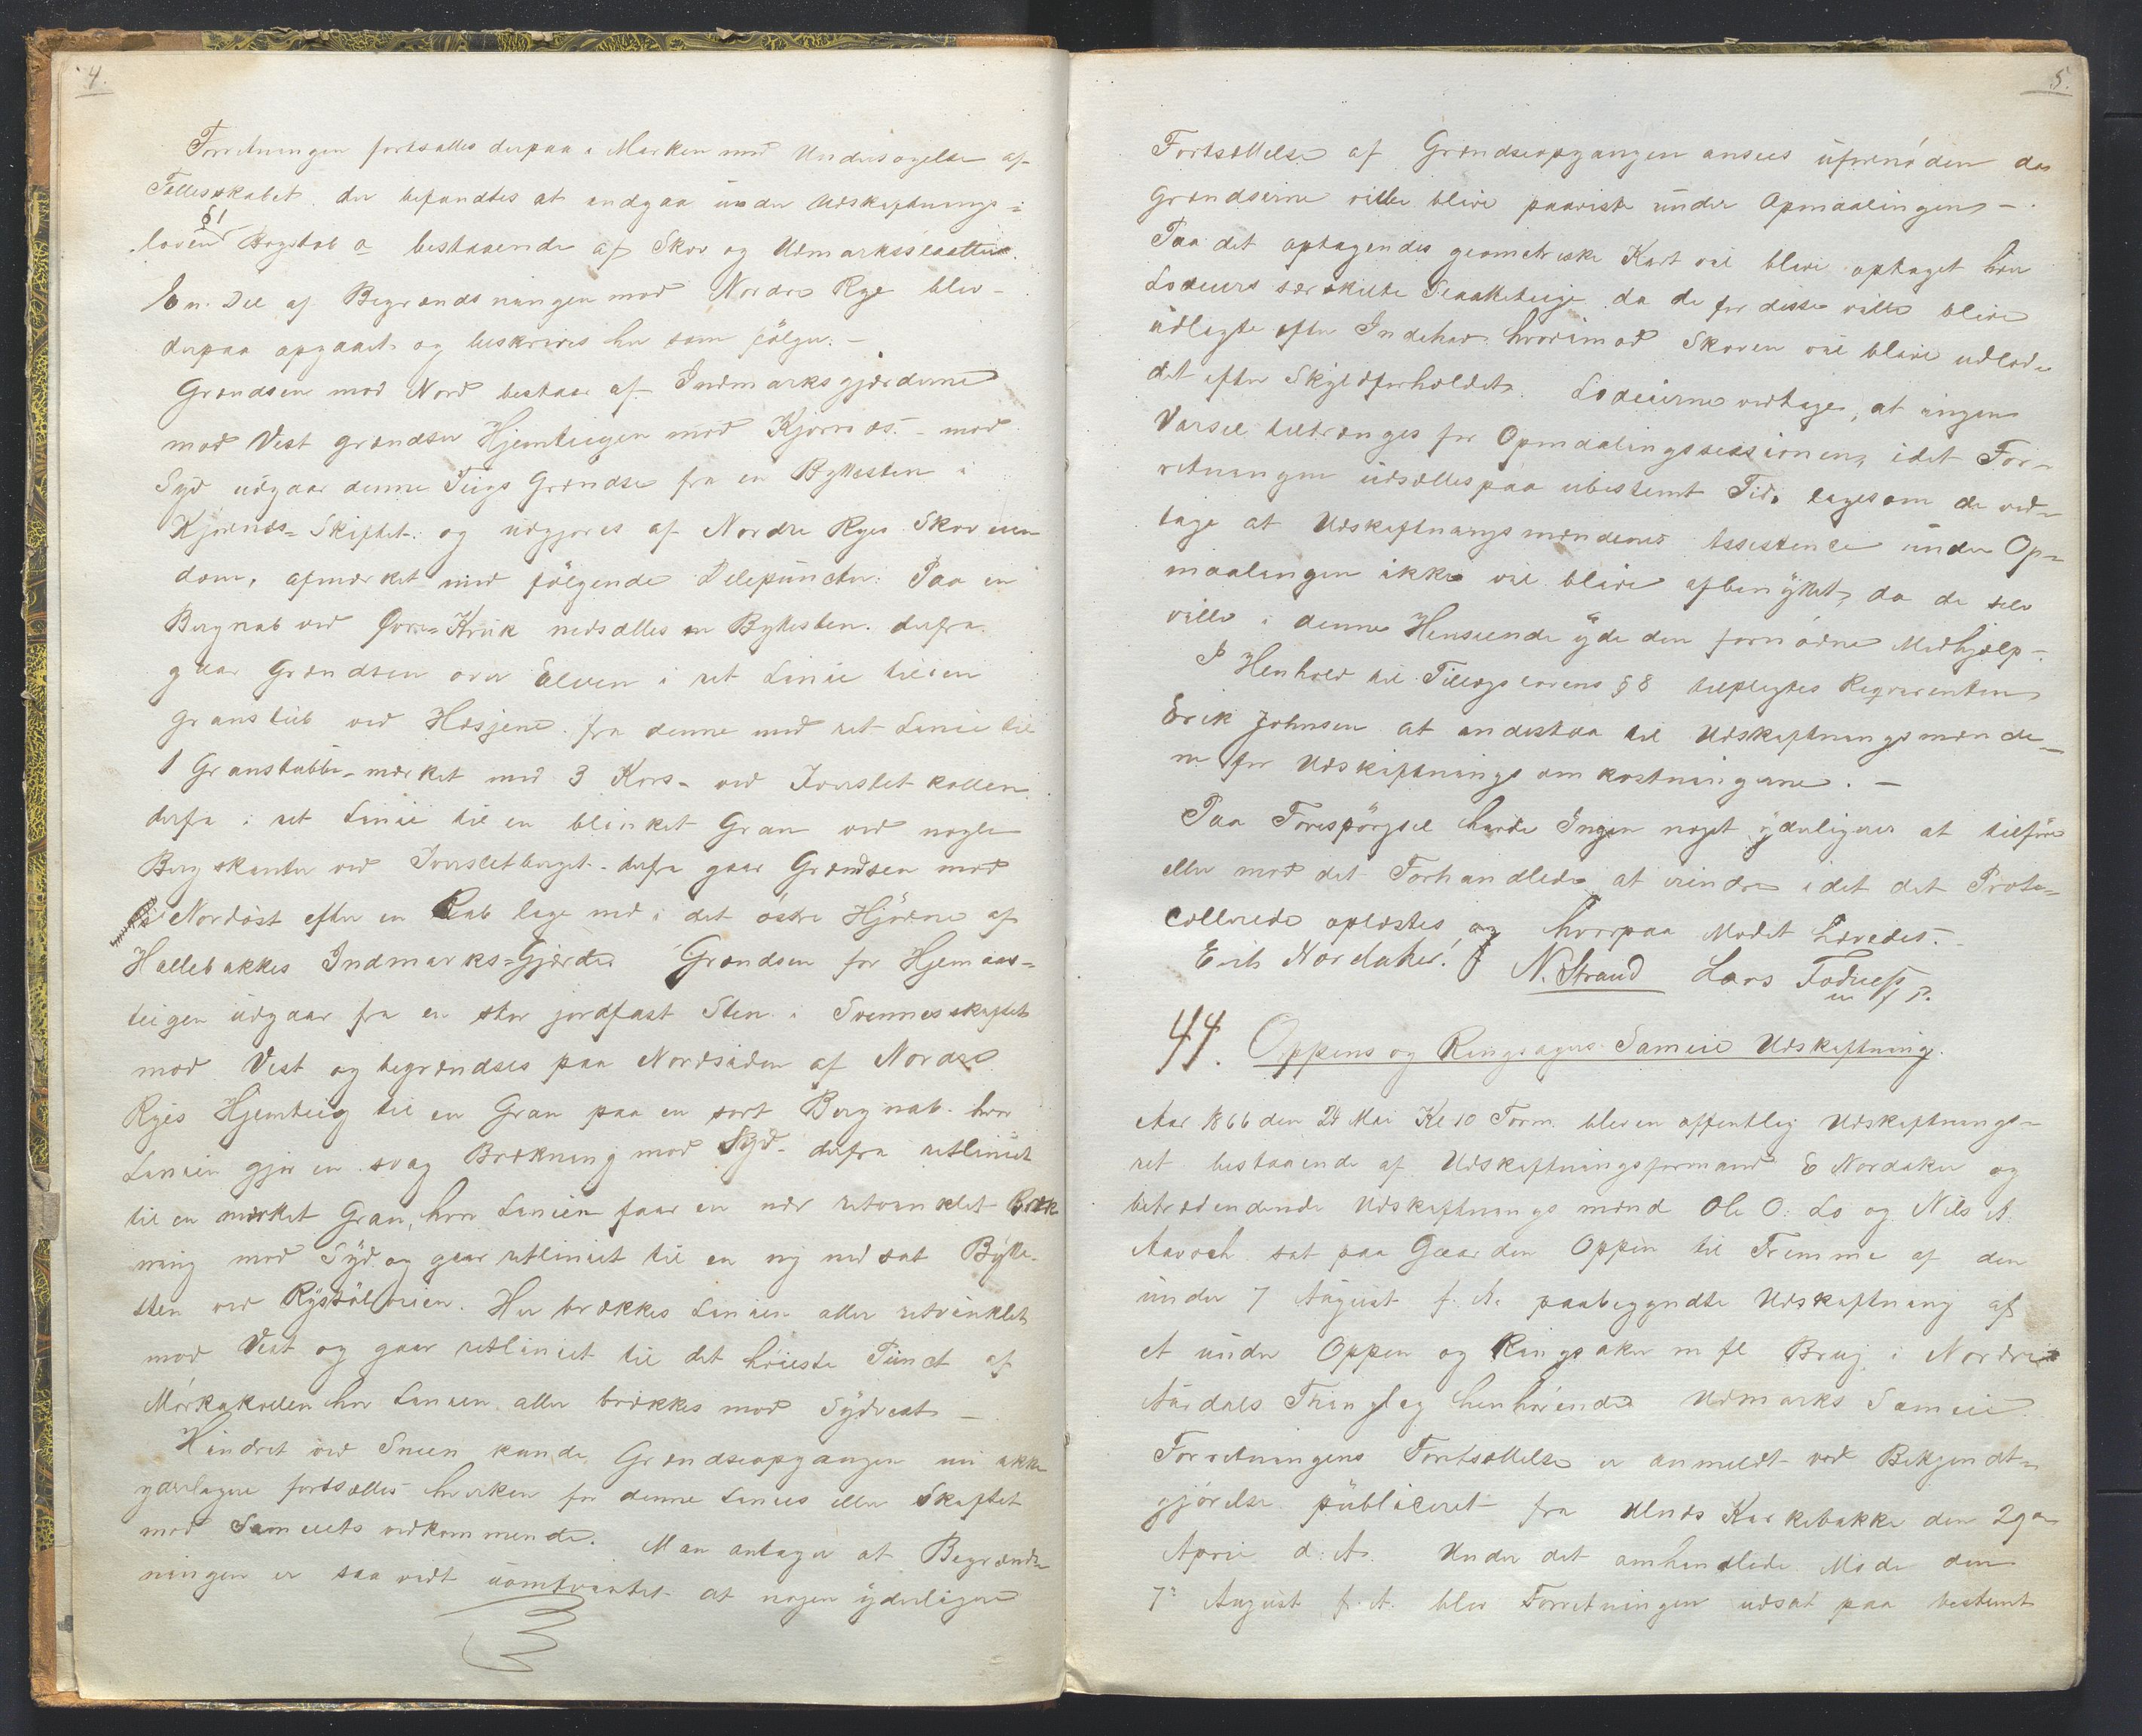 4.
Forretningen fortsattes derpaa i Marken med Undersøgelse af
Fællesskabet, der befandtes at indgaa under Udskiftnings=
lovens § 1 Bogstab a bestaaende af Skov og Udmarksslaatter.
En Del af Begrændsningen mod Nordre Rye blev
derpaa opgaaet og beskrives her som følger: –
Grændsen mod Nord bestaar af Indmarksgjærderne
mod Vest grændser Hjemteigen mod Kjørnæs – mod
Syd udgaar denne Teigs Grændse fra en Byttesten i
Kjørnæs=Skiftet: og udgjøres af Nordre Ryes Skov eien
dom, afmærket med følgende Delepuncter: Paa en
Bergnab ved Qvern=Kruk nedsættes en Byttesten. derfra
gaar Grændsen over Elven i ret Linie til en
granstub ved Hæsjene. fra denne med ret Linie til
1 Granstubbe – mærket med 3 Kors – ved Iverslet kollen
derfra i ret Linie til en blinket Gran ved nogle
Bergskanter ved Iversletberget – derfra gaar Grændsen mod
Nordøst efter en Rab lige ned i det østre Hjørne af
Hallebakkes Indmarks=Gjærde. Grændsen for Hjemaas=
teigen udgaar fra en stor jordfast Sten i Svennesskiftet
mod Vest og begrændses paa Nordsiden af Nordre
Ryes Hjemteig til en Gran paa en sort Bergnab. hvor
Linien gjør en svag Brækning mod Syd – derfra retliniet
til en mærket Gran, hvor Linien faar en nær retvinklet Bræk
ning mod Syd og gaar retliniet til en ny nedsat Bytte-
sten ved Rystølveien. Her brækkes Linien atter retvinklet
mod Vest og gaar retliniet til det høieste Punct af
Mørkakollen hvor Linien atter brækkes mod Sydvest –
Hindret ved Sneen kunde Grændseopgangen nu ikke
yderligere fortsættes hverken for denne Linies eller Skiftet
mod Sameiets vedkommende. Man antager at Begrænds
ningen er saa vidt uomtvistet at nogen yderligere
5.
Fortsættelse af Grændseopgangen ansees ufornøden da
Grændserne ville blive paaviste under Opmaalingen –
Paa det optagendes geometriske Kart vil blive optaget hver
Lodeiers særskilte Slaatteteige da de for disse ville blive
udlagte efter Indehav hvorimod Skoven vil blive udlod=
det efter Skyldforholdet. Lodeierne vedtage, at ingen
Varsel tiltrænges for Opmaalingssessionen, idet For=
retningen udsættes paa ubestemt Tid, ligesom de ved=
tage at Udskiftningsmændenes Assistence under Op=
maalingen ikke vil blive afbenyttet, da de selv
ville i denne Henseende yde den fornødne Medhjælp –
I Henhold til Tillægslovens § 8 tilpligtes Reqvirenten
Erik Johnsen at indestaa til Udskiftningsmænde=
ne for Udskiftningsomkostningerne. –
Paa Forespørgsel havde Ingen noget yderligere at tilføre
eller mod det Forhandlede at erindre idet det Proto=
collerede oplæstes, og hvorpaa Mødet hævedes. –
Erik Nordaker. N. Strand Lars Fodnæss
m f P.
44. Oppens og Ringsagers Sameie Udskiftning.
Aar 1866 den 24 Mai Kl 10 Form. blev en offentlig Udskiftnings=
ret bestaaende af Udskiftningsformand E Nordaker og
betrædendende Udskiftnings mænd Ole O: Lo og Nils A.
sat paa Gaarden Oppen til Fremme af den
under 7 August f. A. paabegyndte Udskiftning af
et under Oppen og Ringsaker m fl Brug i Nordre
Aurdals Thinglag henhørende Udmarks Sameie.
Forretningens Fortsættelse er anmeldt ved Bekjendt=
gjørelse publiceret fra Ulnæs Kirkebakke den 29de
April d: A. Under det omhandlede Møde den
7: August f. A. blev Forretningen udsat paa bestemt